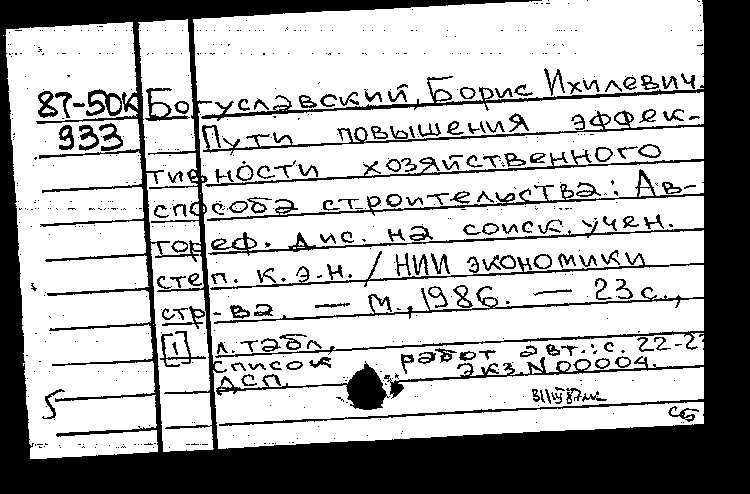 87-50К Богуславский, Борис Ихилевич.
933 Пути повышения эффек-
тивности хозяйственного
способа строительства: Ав-
тореф. дис. на соиск. учен.
степ. к.э.н. / НИИ экономики
стр-ва. — М., 1986. — 23 с.,
[1] л. табл.
список работ авт.: с. 22-23
ДСП. Экз. N 00004.
5
сб